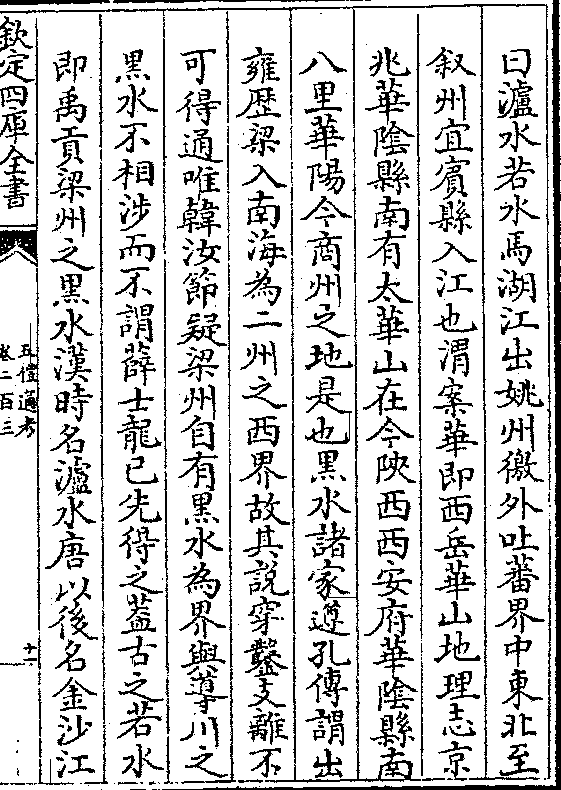 曰瀘水若水馬湖江出姚州徼外吐蕃界中東北至
叙州宜賓縣入江也渭案華即西岳華山地理志京
兆華陰縣南有太華山在今陜西西安府華陰縣南
八里華陽今商州之地是也黒水諸家遵孔傳謂出
雍歴梁入南海為二州之西界故其説穿鑿支離不
可得通唯韓汝節疑梁州自有黒水為界與導川之
黒水不相涉而不謂薛士龍已先得之葢古之若水
即禹貢梁州之黒水漢時名瀘水唐以後名金沙江
欽定四庫全書
五禮通考
卷二百三
十一